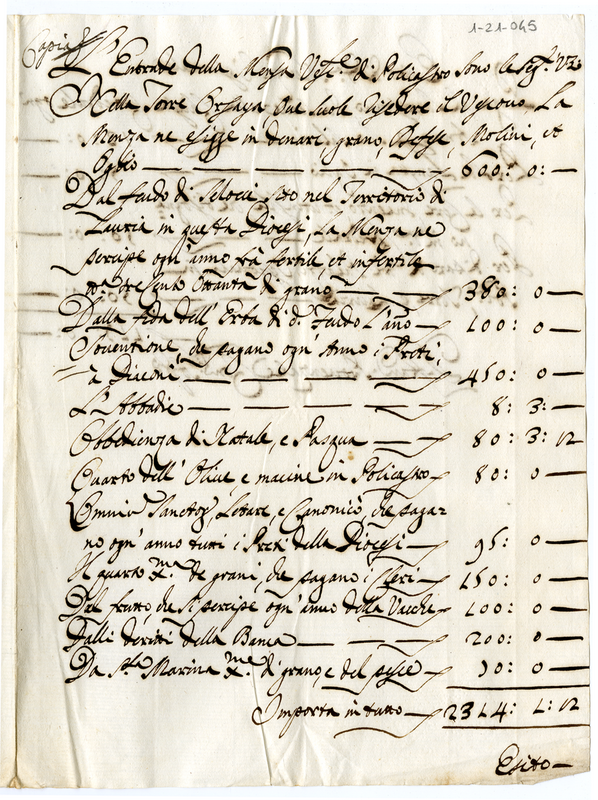 1-21-045
Copia
L'Entrade della Mensa Vesc.le di Policastro sono le seg.ti Vz.
Nella Torre Orsaya, dove suole risedere il Vescovo La
Menza ne esigge in denari, grano, Difese, Molini, et
600: 0: —
Dal feudo di Seloci sito nel Territorio di
Lauria in questa Diocesi, La Menza ne
percipe ogn'anno frà fertile, et infertile
ottanta di grano — 380: 0 —
Dalla fida dell'Erba di d.o feudo l'año — 100: 0 —
Soventione, che pagano ogn'Anno i Preti,
à Diaconi — — — — 450: 0 —
L'Abbadie — — — — 8: 3: —
Obbedienza di Natale, e Pasqua — 80: 3: 12
Quarto dell'Olive, e macine in Policastro — 80: 0 —
Omnium Sanctor, Letare, e Canonico, che paga=
no ogn'anno tutti i Preti della Diocesi — 95: 0 —
Il quarto X.ma de grani, che pagano i Cleri — 150: 0 —
Dal frutto, che si percipe ogn'anno della Vacche — 100: 0 —
Dalli deritti della Banca — — 200: 0 —
Da S.ta Marina X.me di grano, e del pesce — 70: 0 —
Importa in tutto — 2314: 1: 12
Esito —